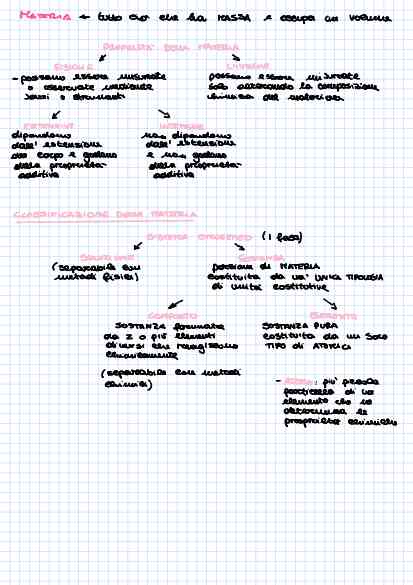 MATERIA ← tutto ciò che ha MASSA e occupa un volume
PROPRIETÀ DELLA MATERIA
FISICHE
CHIMICHE
- possono essere misurate
o osservate mediante
sensi o strumenti
possono essere misurate
solo alterando la composizione
chimica del materiale
ESTENSIVE
INTENSIVE
dipendono
dall' estensione
del corpo e godono
della proprietà
additiva
non dipendono
dall' estensione
e non godono
della proprietà
additiva
CLASSIFICAZIONE DELLA MATERIA
SISTEMA OMOGENEO (1 fase)
SOLUZIONE
SOSTANZA
(separabile con
metodi fisici)
porzione di MATERIA
costituita da un' UNICA TIPOLOGIA
di unità costitutive
COMPOSTO
ELEMENTO
SOSTANZA formata
da 2 o più elementi
diversi che reagiscono
chimicamente
SOSTANZA PURA
costituita da un SOLO
TIPO di ATOMI
(separabile con metodi
chimici)
- ATOMO: più piccola
particella di un
elemento che ne
determina le
proprietà chimiche